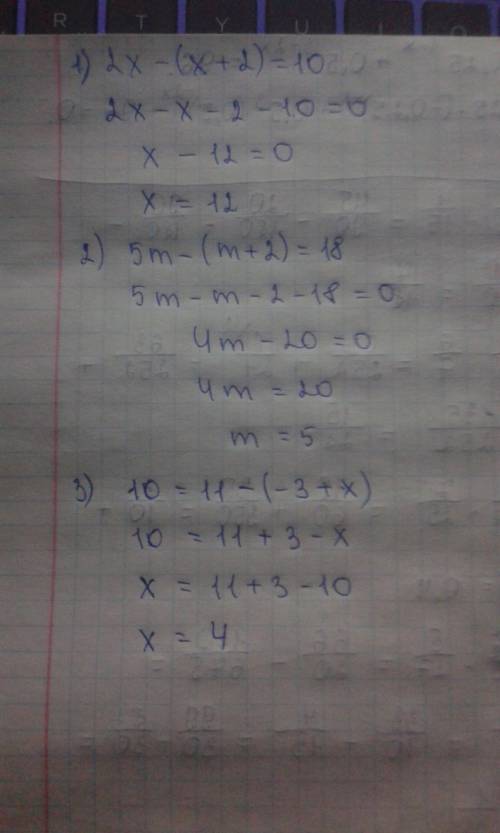 R T Y U I O
1) 2x - (x + 2) = 10
2x - x - 2 - 10 = 0
x - 12 = 0
x = 12
2) 5m - (m + 2) = 18
5m - m - 2 - 18 = 0
4m - 20 = 0
4m = 20
m = 5
3) 10 = 11 - (-3 + x)
10 = 11 + 3 - x
x = 11 + 3 - 10
x = 4